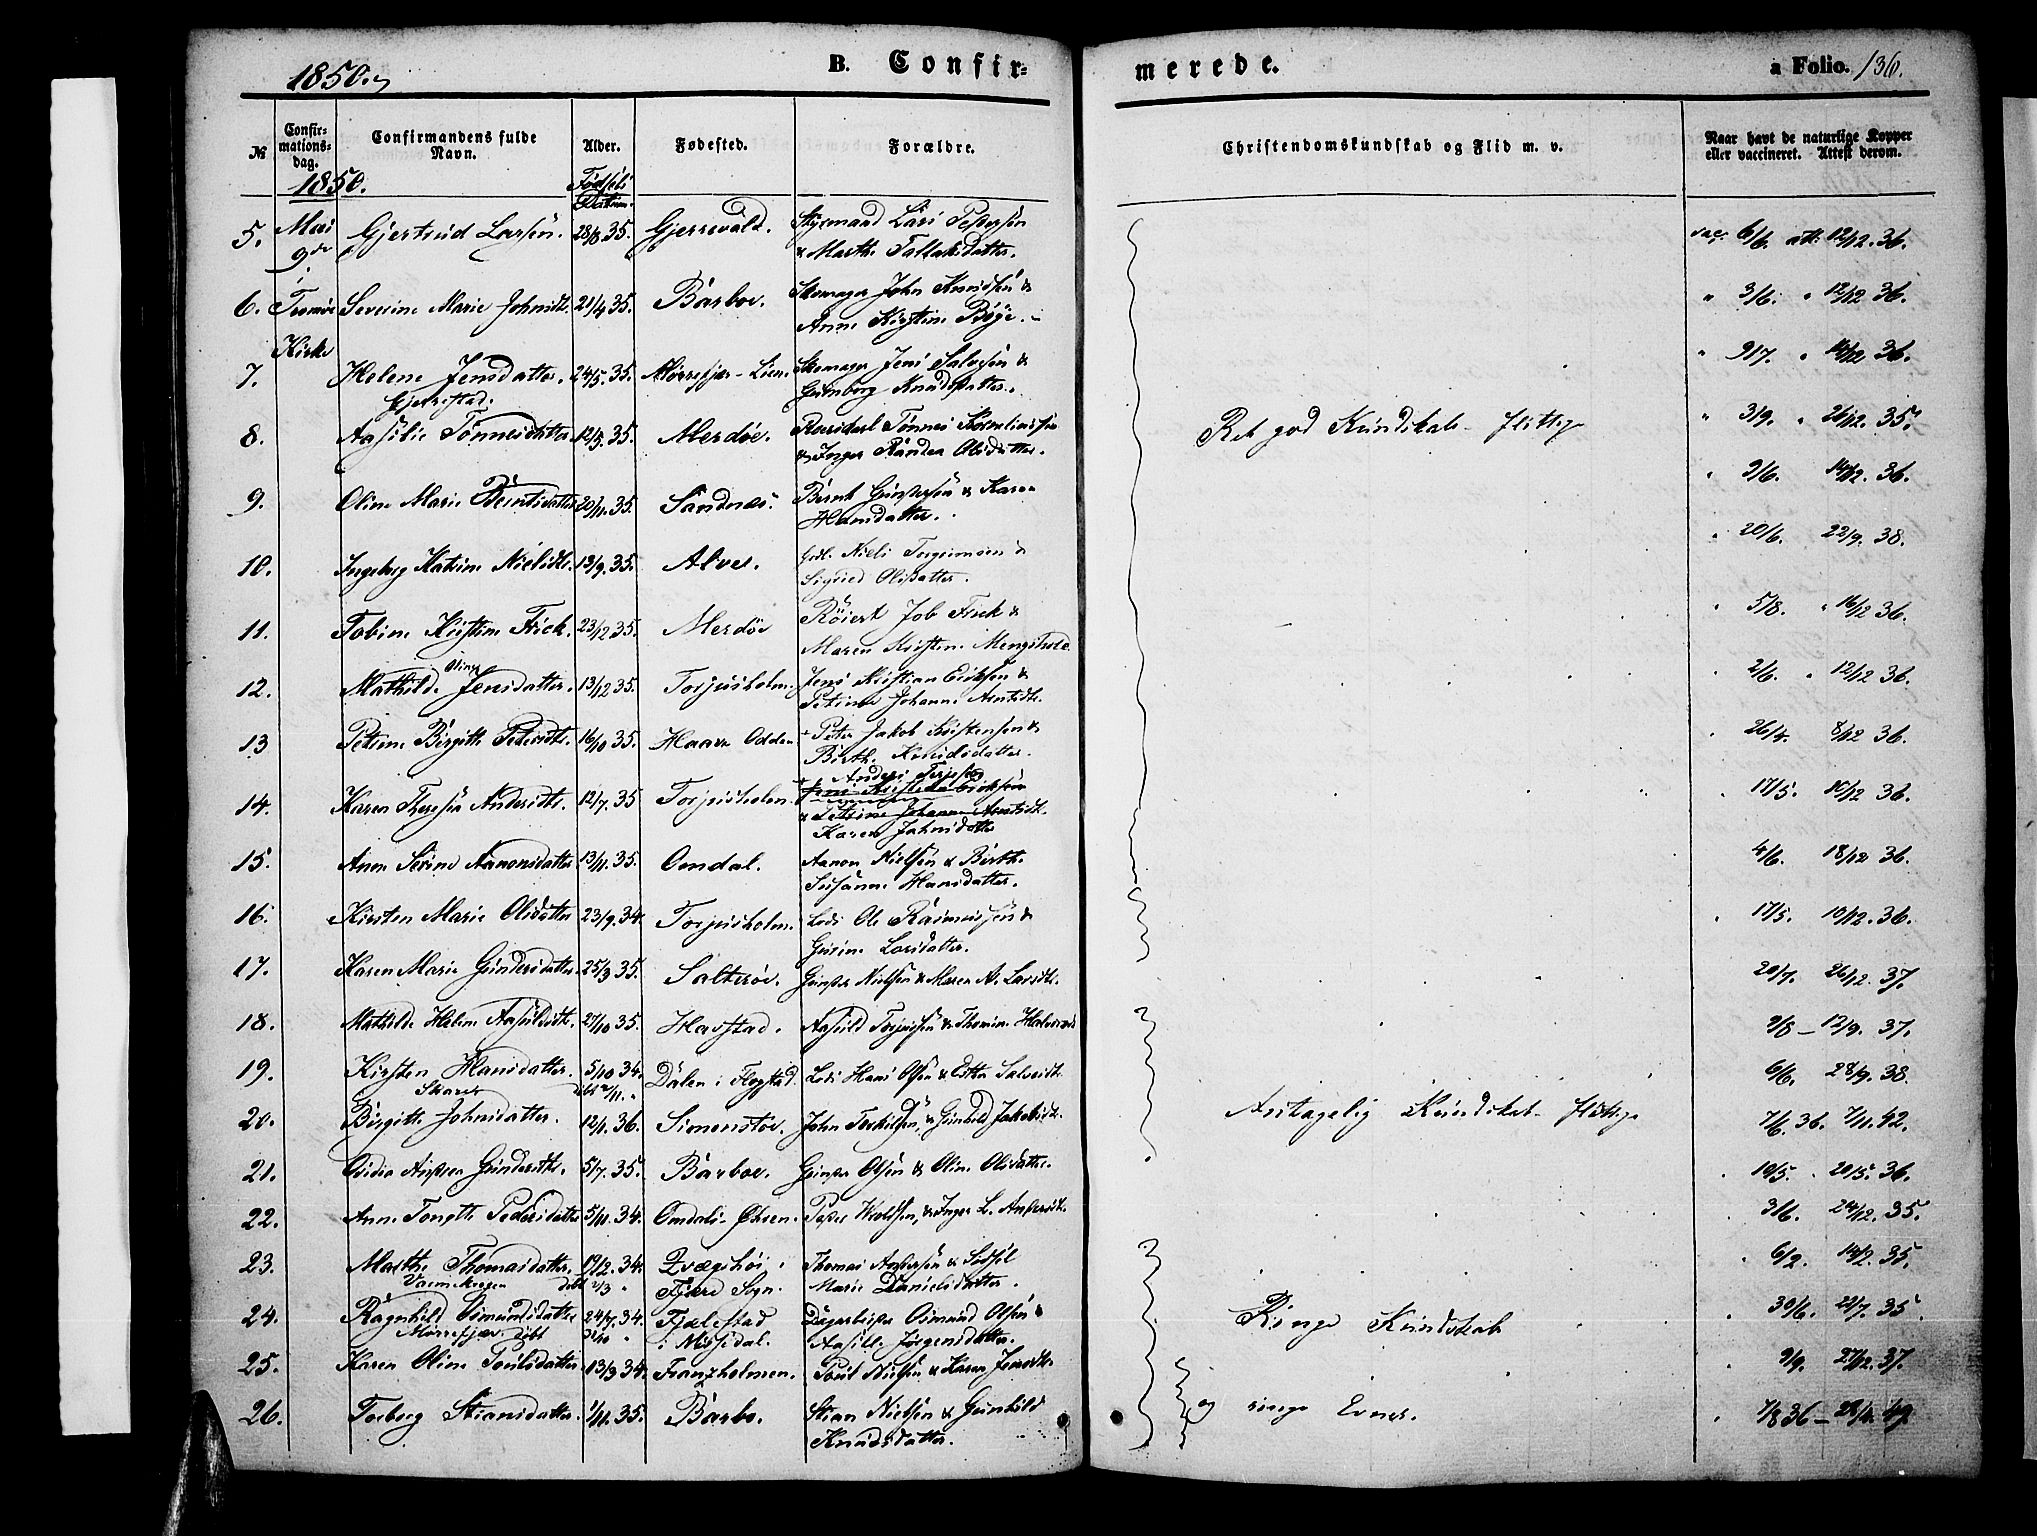 1850.
B. Confirmerede.
a Folio. 136.
№
Confirmations-dag.
Confirmandens fulde Navn.
Alder.
Fødested.
Forældre.
Christendomskundskab og Flid m. v.
Naar havt de naturlige Kopper eller vaccineret. Attest derom.
1850.
Fødsels Datum.
5. Mai 9de Gjertrud Larsen. 28/8 35. Gjerrevald. Styrmand Lars Pedersen & Marth. Tallaksdatter. vac. 6/6. att. 12/12. 36.
6. i Tromøe Severine Marie Johnsdt. 21/4 35. Barboe. Skomager John Knudsen & Anne Kirstine Bøge. " 3/6. " 12/12 36.
Kirke
7. Helene Jensdatter. Gjerrestad. 24/5. 35. Mørrefjær-Lien. Skomager Jens Salvesen & Gunborg Knudsdatter. " 9/7. " 14/12 36.
8. Aasille Tønnesdatter 12/5. 35. Merdøe. Tønnes Kornelius & Inger Olsdatter. " 3/9. " 26/12. 35.
Ret god Kundskab flittige
9. Oline Marie Berntsdatter 20/11. 35. Sandnæs. Bernt Gundersen & Karen Hansdatter. " 9/6. 14/12. 36.
10. Ingeborg Katrine Nielsdt. 13/9. 35. Alvee. Niels Torgrimsen & Sigried Olsdatter. " 20/6. 22/9. 38.
11. Tobine Kirstine Frick. 23/12 35. Merdöe Röiert Job Frick & Maren Kirstine " 5/8. " 16/12 36.
12. Mathilde Oline Jensdatter. 13/12 35. Torjusholm. Jens Kristian Eriksen & Petrine Johanne Arntsdt. " 2/6. " 12/12 36.
13 Petrine Birgitte Pedersdt. 16/10 35. Haave Odden Peter Jakob Kristensen & Birth. Knudsdatter. " 26/4. 8/12 36.
14. Karen Theresia Andersdt. 12/7. 35 Torjusholm. Anders Terjesen
Jens Kristian Eriksen
& Petrine Johanne Arntsdt.
Karen Jahnsdatter " 17/5. 10/12 36.
15. Anne Serine Aanonsdatter 13/11. 35. Omdal. Aanon Nielsen & Birth. Susanne Hansdatter. 4/6. 18/12 36.
16. Kirsten Marie Olsdatter 23/9. 34. Torjusholm. Lods Ole Rasmussen & Gurine Larsdatter. " 17/5. 10/12. 36.
17. Karen Marie Gundersdatter. 25/3 35. Salterøe. Gunder Nielsen & Maren A. Larsdt. 20/7. 26/12. 37.
18. Mathilde Helene Aasulvsdt. 27/10 35. Havstad. Aasuld Torjussen & Thomine Halvorsd. 9/8 — 12/9. 37.
19. Kirsten Hansdatter. Skaret 5/10 34. Dalen i Flogstad. Lods Hans Olsen & Esther Salvesdt. 6/6. 28/9. 38.
20. Birgitte Johnsdatter. 12/1. 36. Simonstøe. John Terkilsen, & Gunild Jakobsdt. 7/6. 36. 7/11. 42.
Antagelig Kundskab flittige
21. Andrea Gundersdt. 5/7. 35. Barboe. Gunder Olsen & Oline Olsdatter. " 10/5. " 20/5. 36.
22. Anne Tongtte Pedersdatter 5/11. 34. Omdals-Øhren. Peder Woldsen, & Inger L. Andersdt. 3/6. 24/12. 35.
23. Marthe Thomasdatter. døbt 2/3 19/2. 34. i Fjære Sogn. Thomas Andersen & Sidsel Marie Danielsdatter. " 6/2. 14/2. 35.
24. Ragnhild Osmundsdatter Mørrefjær. døbt 24/7. 34. Fjælestad i Nissedal. Dagarbeider Osmund Olsen & Aasille Jørgensdatter. " 30/6. 22/7. 35.
Ringe Kundskab
25. Karen Oline Poulsdatter. 13/3 34. Franzholmen. Poul Nielsen & Karen Jensdt. " 9/9. 27/12. 37.
26. Torborg Stiansdatter. 1/11. 35. Barbo. Stian Nielsen & Gunhild Knudsdatter. " 7/8 36 — 28/4. 49.
og ringe Evner.